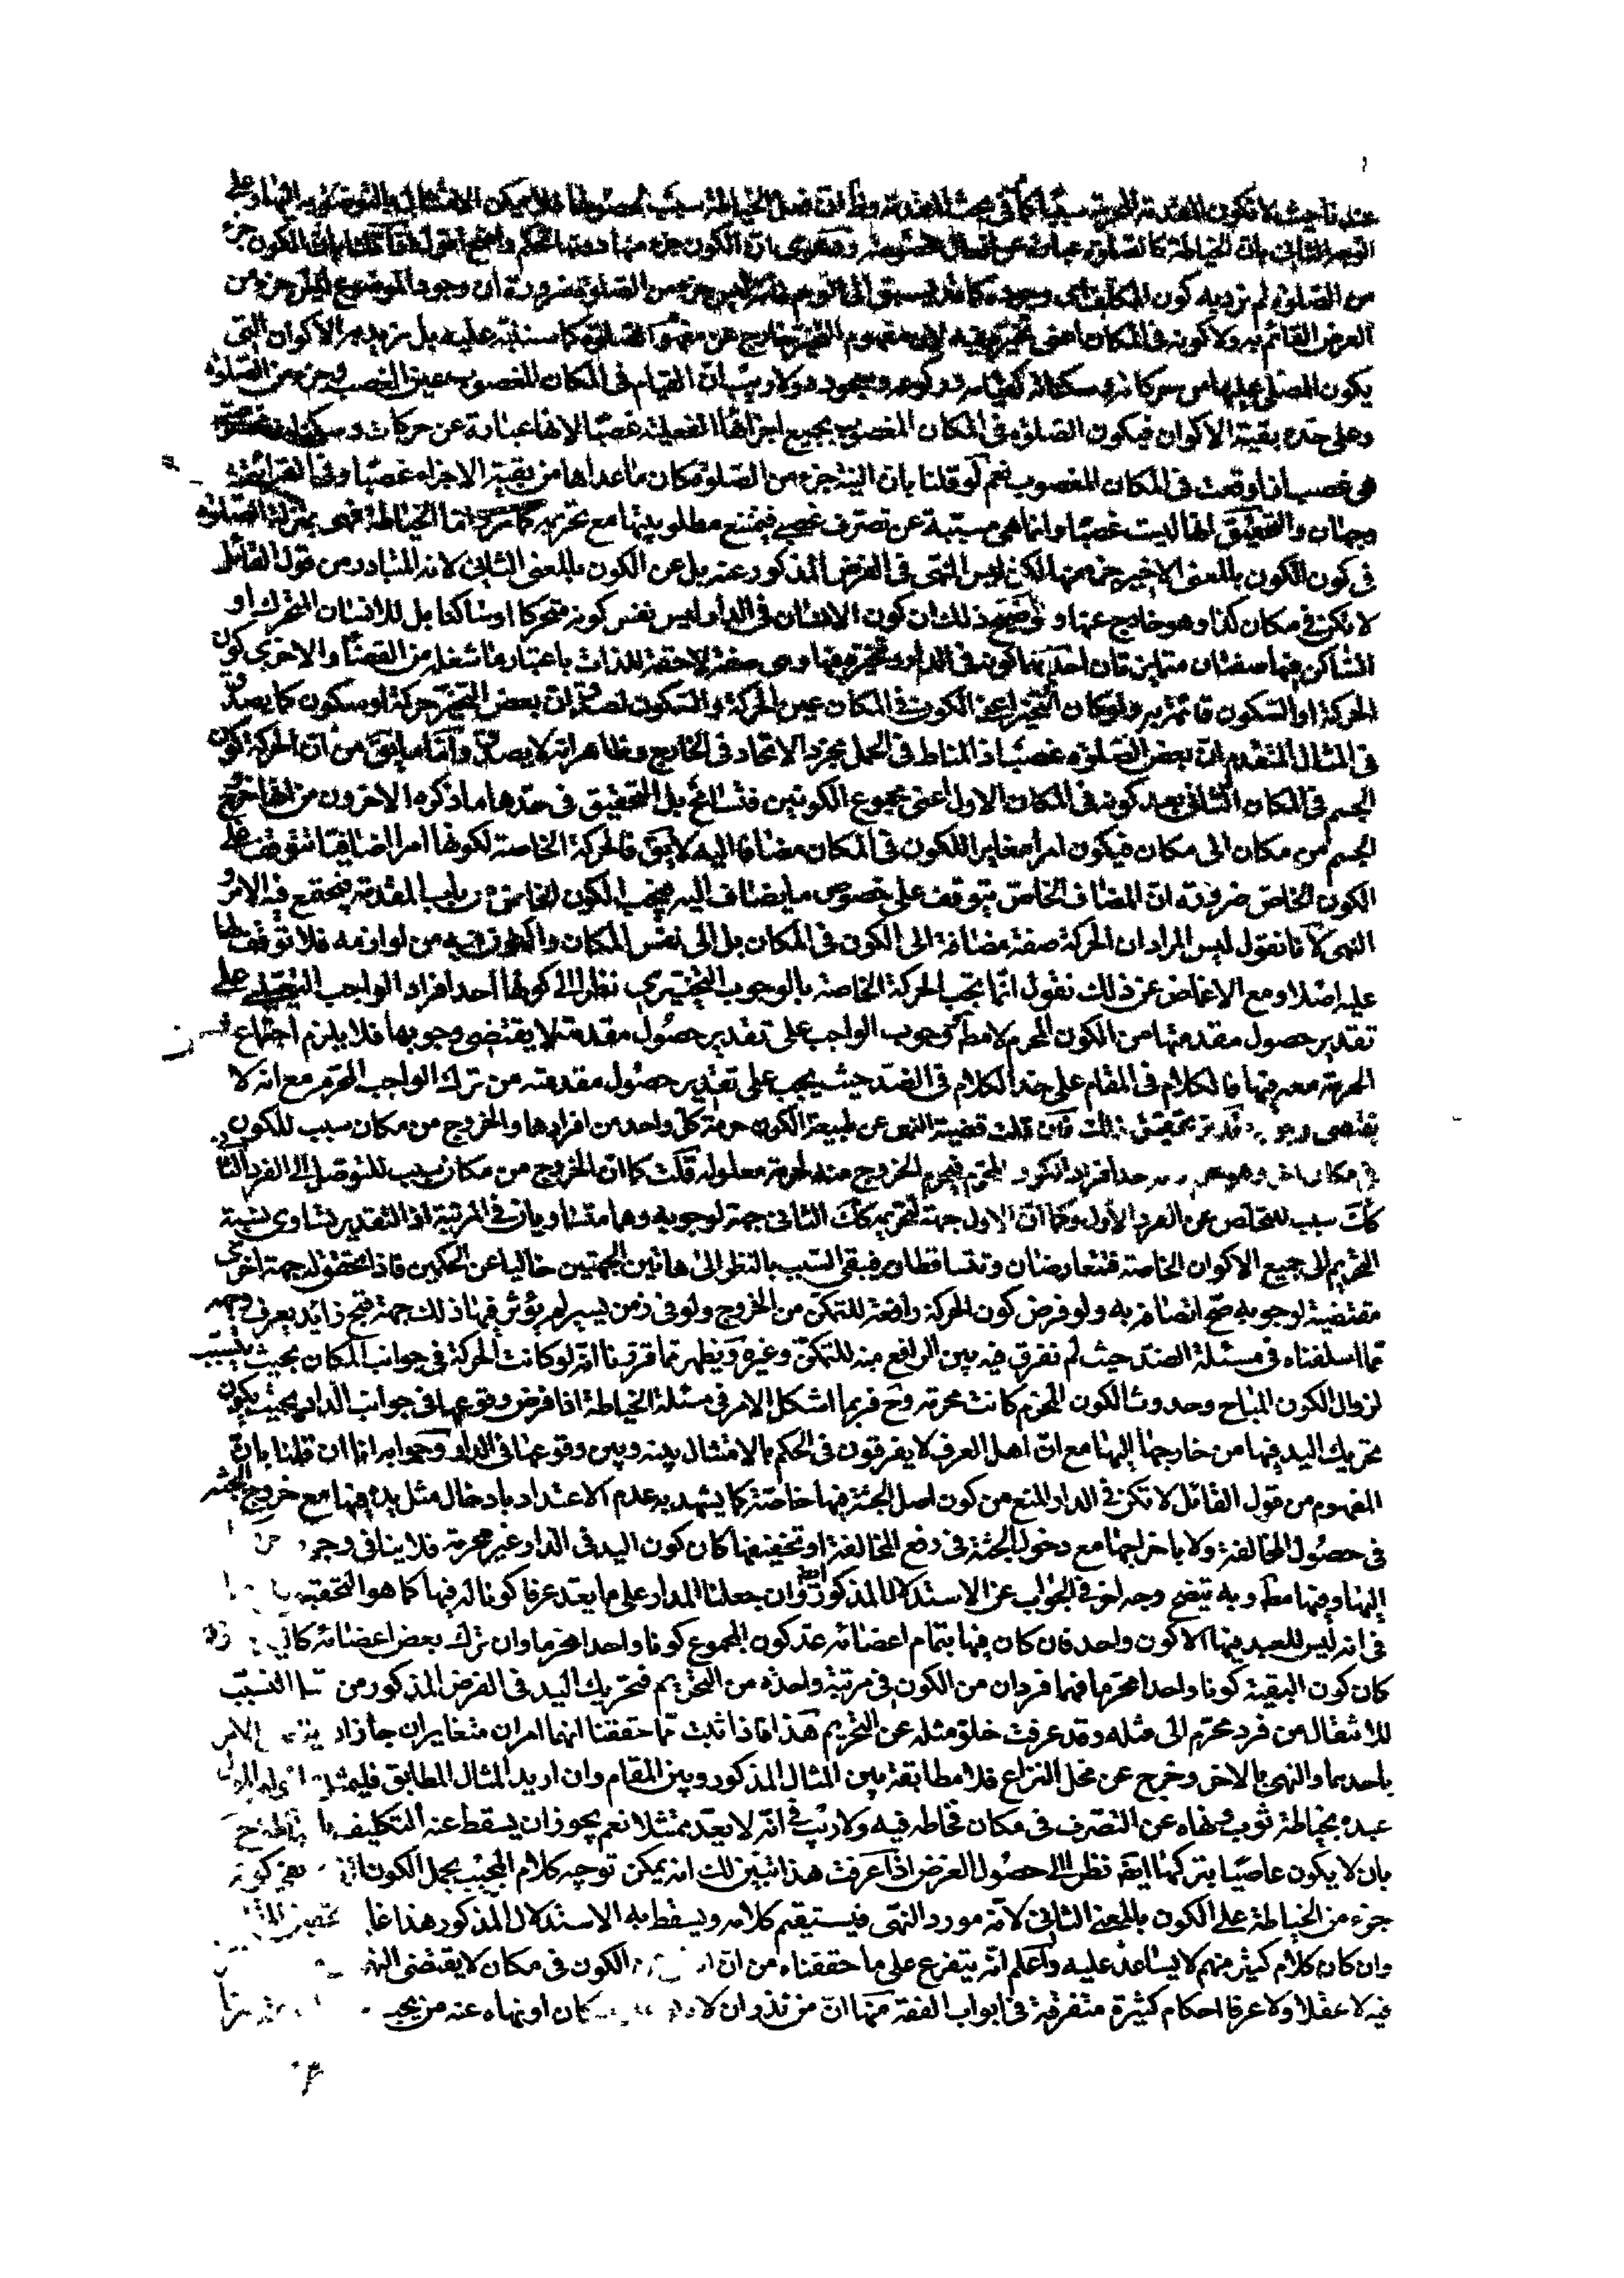 عندنا حيث لا تكون المقدمة المحرمة سببا كما في مبحث المقدمة
الوجه الثاني بان الخياطة كالصلوة عبارة عن بان الكون جزء منها دونها تحكم واضح اقول بان الكون جزء
من الصلوة لم نرد به كون المكلف اى وجوده كما قد يسبق الى الوهم فانه ليس جزء من الصلوة ضرورة ان وجود الموضوع ليس جزء من
العرض القائم به ولا كونه فى المكان اعنى تحيزه فيه لان مفهوم التحيز خارج عن مفهوم الصلوة كما سننبّه عليه بل نريد به الاكوان التى
يكون المصلى عليها من حركاته وسكناته كقيامه وركوعه وسجوده ولا ريب انّ القيام فى المكان المغصوب عين الغصب وجزء من الصلوة
وعلى حدّه بقية الاكوان فيكون الصلوة فى المكان المغصوب بجميع اجزائها الفعلية غصبًا لانها عبارة عن حركات وسكنات
هى غصب اذا وقعت فى المكان المغصوب نعم لو قلنا بان النية جزء من الصلوة كان ما عداها من بقية الاجزاء غصبًا وفى القرائة
وجهان والتحقيق انها ليست غصبًا وانما هى مسبّبة عن تصرف غصبى فيمتنع مطلوبيتها مع تحريمه كما مرّ امّا الخياطة فهى بمنزلة الصلوة
فى كون الكون بالمعنى الاخير جزء منها لكن ليس النهى فى الفرض المذكور عنه بل عن الكون بالمعنى الثانى لانه المتبادر من قول القائل
لا تكن في مكان كذا وهو خارج عنها وتوضيح ذلك ان كون الانسان فى الدار ليس نفس كونه متحركا او ساكنا بل للانسان المتحرك او
الساكن فيها صفتان متمايزتان احديهما كونه فى الدار وتحيزه فيها وهى صفة لاحقة للذات باعتبار ما شغله من الفضاء والاخرى كون
الحركة او السكون قائمة به ولو كان التحيز اعنى الكون فى المكان عين الحركة والسكون لصدق انّ بعض التحيّز حركة او سكون كما يصدق
فى المثال المتقدم انّ بعض الصلوة غصب اذ المناط فى الحمل مجرّد الاتحاد فى الخارج وظاهر انه لا يصدق وامّا ما يقال من انّ الحركة كون
الجسم فى المكان الثانى بعد كونه فى المكان الاول اعنى مجموع الكونين فتسامح بل التحقيق فى حدّها ما ذكره الاخرون من انها خروج
الجسم من مكان الى مكان فيكون امرا مغايرا للكون فى المكان مضافا اليه لا يقال فالحركة الخاصة لكونها امرا اضافيّا تتوقف على
الكون الخاصّ ضرورة انّ المضاف الخاصّ يتوقف على خصوص ما يضاف اليه فيجب الكون الخاصّ من باب المقدمة فيجتمع فيه الامر و
النهى لانا نقول ليس المراد ان الحركة صفة مضافة الى الكون فى المكان بل الى نفس المكان والكون فيه من لوازمه فلا توقف لها
عليه اصلا ومع الاغماض عن ذلك نقول انّما يجب الحركة الخاصة بالوجوب التخييرى نظرا الى كونها احد افراد الواجب التخييرى على
تقدير حصول مقدمتها من الكون المحرم لا مطلقا ووجوب الواجب على تقدير حصول مقدمته لا يقتضى وجوبها فلا يلزم اجتماع
الحرمة معه فيها فالكلام فى المقام على حد الكلام فى الضد حيث يجب على تقدير حصول مقدمته من ترك الواجب المحرم مع انه لا
يقتضى وجوبه وقد مرّ تحقيق ذلك فان قلت قضية النهى عن طبيعة الكون حرمة كلّ واحد من افرادها والخروج من مكان سبب للكون
فى مكان اخر وهو احد افراد الكون المحرّم فيحرم الخروج منه لحرمة معلوله قلت كما انّ الخروج من مكان سبب للتوصل الى الفرد الثانى
كك سبب للتخلص عن الفرد الأول وكما انّ الاول جهة لتحريمه كك الثانى جهة لوجوبه وهما متساويان فى المرتبة اذ التقدير تساوى نسبة
التحريم الى جميع الاكوان الخاصة فتتعارضان وتتساقطان فيبقى السبب بالنظر الى هاتين الجهتين خاليا عن الحكمين فاذا تحقق له جهة اخرى
مقتضية لوجوبه صحّ اتصافه به ولو فرض كون الحركة رافعة للتمكن من الخروج ولو فى زمن يسير لم يؤثر فيها ذلك جهة قبح زائد يعرف وجهه
ممّا اسلفناه فى مسئلة الضدّ حيث لم نفرق فيه بين الرافع منه للتمكّن وغيره ويظهر ممّا قررنا انّه لو كانت الحركة فى جوانب المكان بحيث يتسبّب
لزوال الكون المباح وحدوث الكون المحرّم كانت محرمة وح فربما اشكل الامر فى مسئلة الخياطة اذا فرض وقوعها فى جوانب الدار بحيث يكون
تحريك اليد فيها من خارجها اليها مع انّ اهل العرف لا يفرقون فى الحكم بالامتثال بينه وبين وقوعها فى الدار وجوابه انا ان قلنا بانّ
المفهوم من قول القائل لا تكن فى الدار المنع من كون اصل الجثة فيها خاصّة كما يشهد به عدم الاعتداد بادخال مثل يده فيها مع خروج الجثة
فى حصول المخالفة ولا باخراجها مع دخول الجثة فى رفع المخالفة او تخفيفها كان كون اليد فى الدار غير محرمة فلا ينافى
اليها وفيها مطلقا وبه يتضح وجه اخر فى الجواب عن الاستدلال المذكور ايضا وان جعلنا المدار على ما يعدّ عرفا كونا له فيها كما هو التحقيق
فى انه ليس للعبد فيها الا كون واحد فان كان فيها بتمام اعضائه عدّ كون المجموع كونا واحدا محرما وان ترك بعض اعضائه
كان كون البقية كونا واحدا محرّما فهما فردان من الكون فى مرتبة واحدة من التحريم فتحريك اليد فى الفرض المذكور من التسبّب
للانتقال من فرد محرّم الى مثله وقد عرفت خلوّ مثله عن التحريم هذا فاذا ثبت ممّا حققنا انهما امران متغايران جاز الامر
باحديهما والنهى بالاخر وخرج عن محل النزاع فلا مطابقة بين المثال المذكور وبين المقام وان اريد المثال المطابق فليمثل
عبده بخياطة ثوب ونهاه عن التصرف فى مكان فخاطه فيه ولا ريب فى انّه لا يعدّ ممتثلا نعم يجوز ان يسقط عنه التكليف
بان لا يكون عاصيا بتركها ايضا نظرا الى حصول الغرض اذا عرفت هذا تبيّن لك انه يمكن توجيه كلام المجيب بحمل الكون
جزء من الخياطة على الكون بالمعنى الثانى لانّه مورد النهى فيستقيم كلامه ويسقط به الاستدلال المذكور هذا
وان كان كلام كثير منهم لا يساعد عليه واعلم انّه يتفرع على ما حققناه من انّ الكون فى مكان لا يقتضى
فيه لا عقلا ولا عرفا احكام كثيرة متفرقة فى ابواب الفقه منها انّ من نذر ان لا مكان او نهاه عنه من يجب